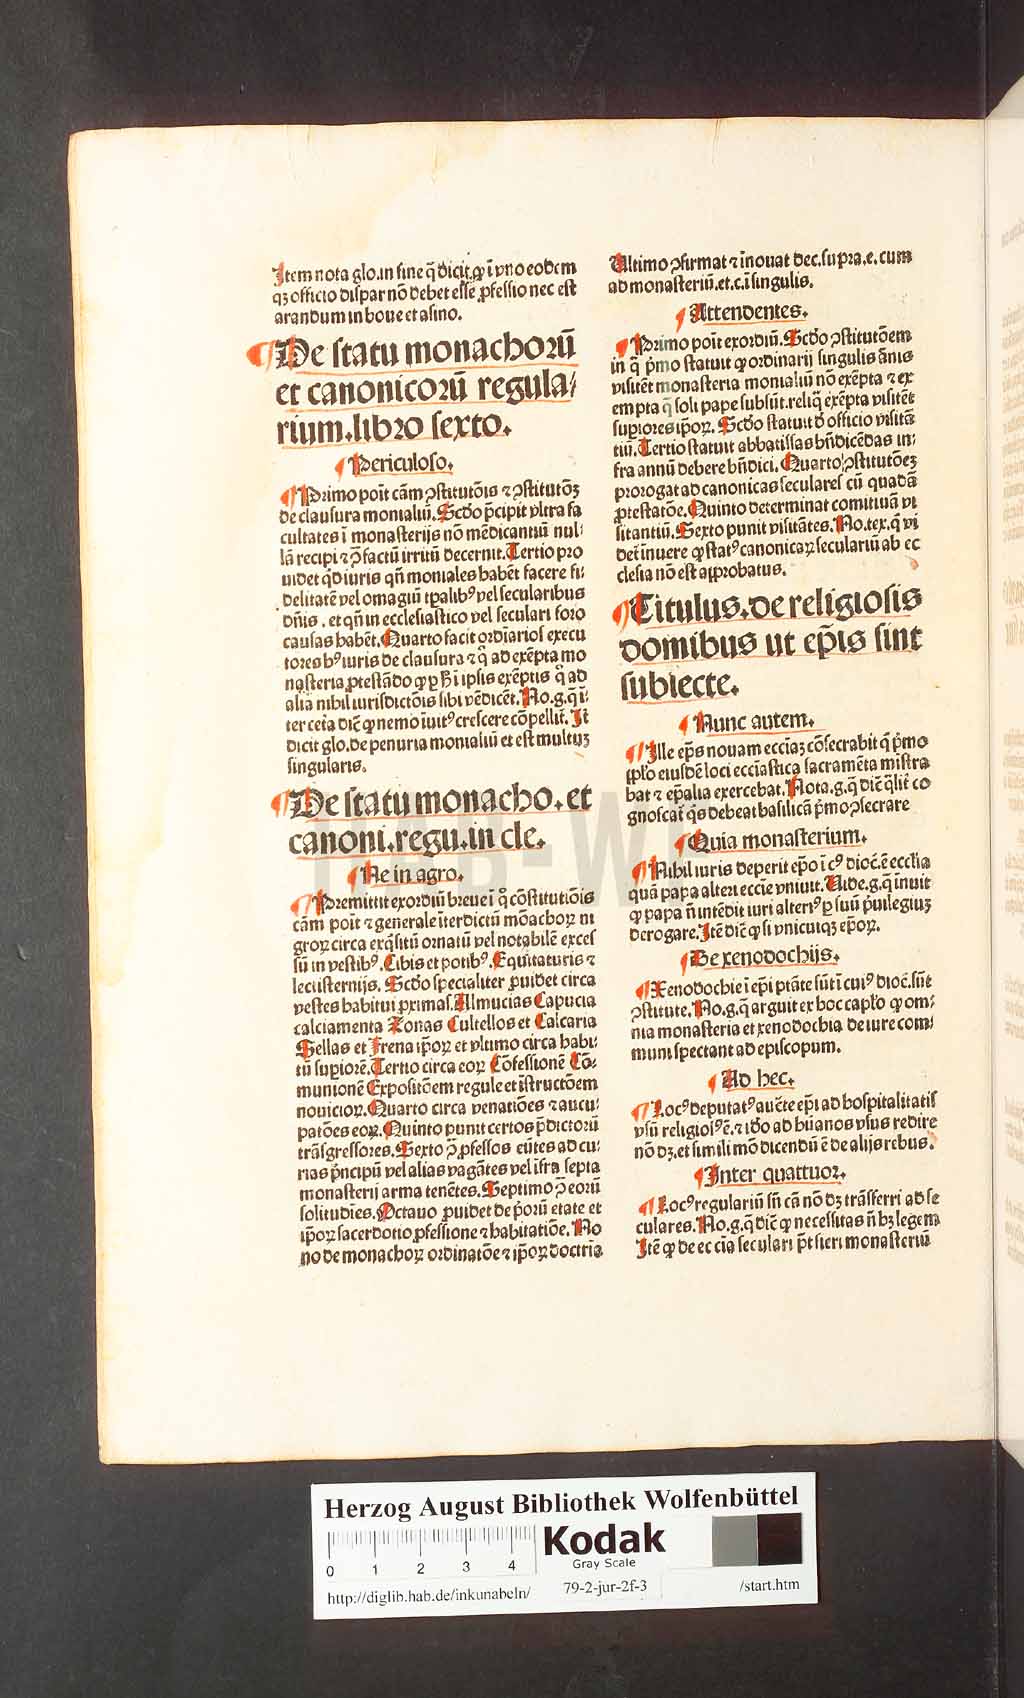 Item nota glo.in fine q̄ dicit ꝙ ī vno eodem
qꝫ officio dispar nō debet esse ꝓfessio nec est
arandum in boue et asino.
¶De statu monachorū
et canonicorū regula⸗
rium.libro sexto.
¶Periculoso.
¶Primo poīt cām ꝯstitutōis ⁊ ꝯstitutōꝫ
de clausura monialiū. Scdo p̄cipit vltra fa
cultates ī monasterijs nō mēdicantiū nul⸗
lā recipi ⁊ ꝯ̄ factū irritū decernit. Tertio pro
uidet qd iuris qn̄ moniales habēt facere fi⸗
delitatē vel omagiū tꝑalibꝰ vel secularibus
dn̄is. et qn̄ in ecclesiastico vel seculari foro
causas habēt. Quarto facit ordīarios execu
tores bꝰ iuris de clausura ⁊ q̊ ad exēpta mo
nasteria ꝓtestādo ꝙ ꝑ ħ ī ipsis exēptis q̊ ad
alia nihil iurisdictōis sibi vēdicēt. No.g.q̄ ī⸗
ter ceta dic̄ ꝙ nemo īuitꝰ crescere cōpellit̄. It̄
dicit glo.de penuria monialiū et est multuꝫ
singularis.
¶De statu monacho.et
canoni.regu.in cle.
¶Ne in agro.
¶Premittit exordiū breue ī q̊ cōstitutiōis
cām poīt ⁊ generale īterdictū mōachoꝝ ni
groꝝ circa exq̄sitū ornatū vel notabilē exces
sū in vestibꝰ. Cibis et potibꝰ. Equitaturis ⁊
lectisternijs. Scdo specialiter ꝓuidet circa
vestes habitui ꝓximas. Almucias Capucia
calciamenta Zonas Cultellos et Calcaria
Sellas et Frena ip̄oꝝ et vltimo circa habi⸗
tū supiorē. Tertio circa eoꝝ Cōfessionē Cō⸗
munionē Expositōem regule et īstructōem
nouicioꝝ. Quarto circa venatiōes ⁊ aucu⸗
patōes eoꝝ. Quinto punit certos p̄dictorū
trāsgressores. Sexto ꝯ̄ ꝓfessos eūtes ad cu⸗
rias p̄ncipū vel alias vagātes vel īfra septa
monasterij arma tenētes. Septimo ꝯ̄ eorū
solitudīes. Octauo ꝓuidet de p̄orū etate et
ip̄oꝝ sacerdotio ꝓfessione ⁊ habitatiōe. No
no de monachoꝝ ordinatōe ⁊ ip̄oꝝ doctrīa
Ultimo ꝯfirmat ⁊ īnouat dec.supra.e.cum
ad monasteriū.et.c.ī singulis.
¶Attendentes.
¶Primo poīt exordiū. Scdo ꝯstitutōem
in q̄ p̄mo statuit ꝙ ordinarij singulis ānis
visitēt monasteria monialiū nō exēpta ⁊ ex
empta q̄ soli pape subsūt.reliq̄ exēpta visitēt
supiores ip̄oꝝ. Scdo statuit đ officio visitā
tiū. Tertio statuit abbatissas bn̄dicēdas in⸗
fra annū debere bn̄dici. Quarto ꝯstitutōeꝫ
prorogat ad canonicas seculares cū quadā
ꝓtestatōe. Quinto determinat comitiuā vi
sitantiū. Sexto punit visitātes. No.tex.q̄ vi
det̄ inuere ꝙ statꝰ canonicaꝝ seculariū ab ec
clesia nō est approbatus.
¶Titulus.de religiosis
domibus ut ep̄is sint
subiecte.
¶Nunc autem.
¶Ille ep̄s nouam ecciaꝫ cōsecrabit q̄ p̄mo
tp̄lo eiusdē loci ecciastica sacramēta mīstra
bat ⁊ ep̄alia exercebat. Nota.g.q̄ dic̄ q̄lit̄ co
gnoscat̄ q̊s debeat basilicā p̄mo ꝯsecrare
¶Quia monasterium.
¶Nihil iuris deperit ep̄o ī cꝰ dioc̄.ē ecclia
quā papa alteri eccie vniuit. Uide.g.q̄ inuit
ꝙ papa n̄ intēdit iuri alteriꝰ ꝑ suū p̄uilegiuꝫ
derogare. Itē dic̄ ꝙ si vnicuiqꝫ ep̄oꝝ.
¶De xenodochijs.
¶Xenodochie ī ep̄i ptāte sūt ī cuiꝰ dioc̄.sūt
ꝯstitute. No.g.q̄ arguit ex hoc caplo ꝙ om⸗
nia monasteria et xenodochia de iure com⸗
muni spectant ad episcopum.
¶Ad hec.
¶Locꝰ deputatꝰ auc̄te ep̄i ad hospitalitatis
vsū religiosꝰ ē.⁊ ido ad hūanos vsus redire
nō dꝫ.et simili mō dicendū ē de alijs rebus.
¶Inter quattuor.
¶Locꝰ regulariū sn̄ cā nō dꝫ trāsferri ad se
culares. No.g.q̄ dic̄ ꝙ necessitas n̄ hꝫ legem
Itē ꝙ de eccia seculari pt̄ fieri monasteriū
HAB-WF
Herzog August Bibliothek Wolfenbüttel
0 1 2 3 4
Kodak
Gray Scale
http://diglib.hab.de/inkunabeln/ 79-2-jur-2f-3 /start.htm